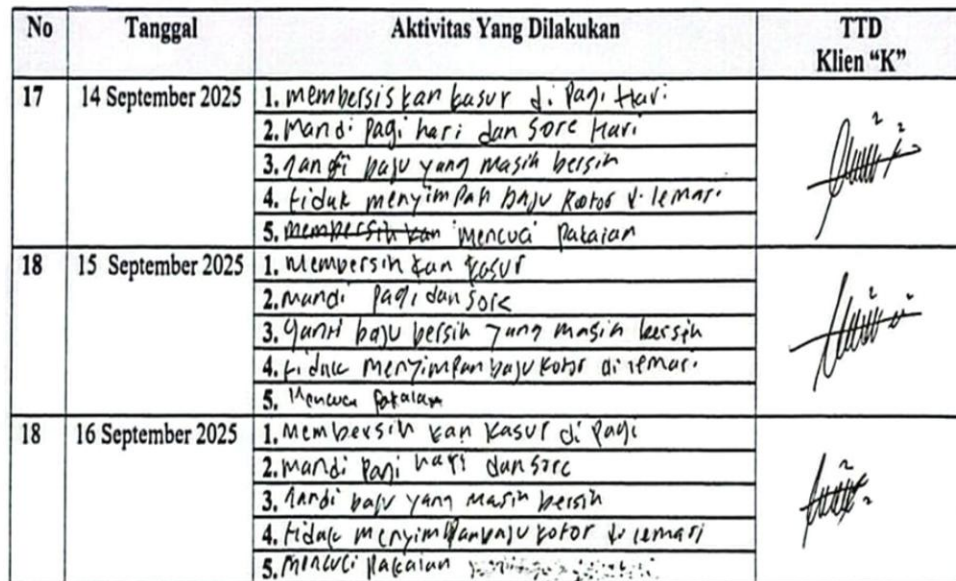 No Tanggal Aktivitas Yang Dilakukan TTD
Klien “K”
17 14 September 2025 1. membersiskan kasur di Pagi Hari
2. Mandi Pagi hari dan Sore Hari
3. gandi baju yang masih bersih
4. tidak menyimpan baju kotor di lemari
5. membersihkan mencuci pakaian
18 15 September 2025 1. Membersihkan kasur
2. mandi Pagi dan Sore
3. ganti baju bersih yang masih bersih
4. tidak menyimpan baju kotor di lemari
5. Mencuci Pakaian
18 16 September 2025 1. Membersihkan kasur di Pagi
2. mandi Pagi hari dan Sore
3. gandi baju yang masih bersih
4. tidak menyimpan baju kotor di lemari
5. Mencuci Pakaian